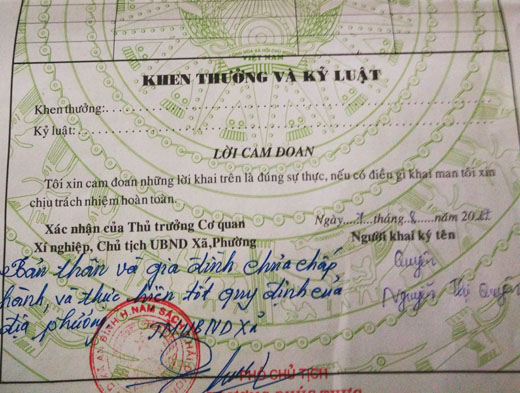 CỘNG HÒA XÃ HỘI CHỦ NGHĨA
VIỆT NAM
KHEN THƯỞNG VÀ KỶ LUẬT
Khen thưởng:
Kỷ luật:
LỜI CAM ĐOAN
Tôi xin cam đoan những lời khai trên là đúng sự thực, nếu có điều gì khai man tôi xin
chịu trách nhiệm hoàn toàn.
Xác nhận của Thủ trưởng Cơ quan
Xí nghiệp, Chủ tịch UBND Xã,Phường
Ngày tháng 8 năm 20
Người khai ký tên
Bản thân và gia đình chưa chấp
hành, và thực hiện tốt quy định của
địa phương
Quyên
Nguyễn Quyên
TM UBND XÃ
AN BÌNH H. NAM SÁCH
PHÓ CHỦ TỊCH